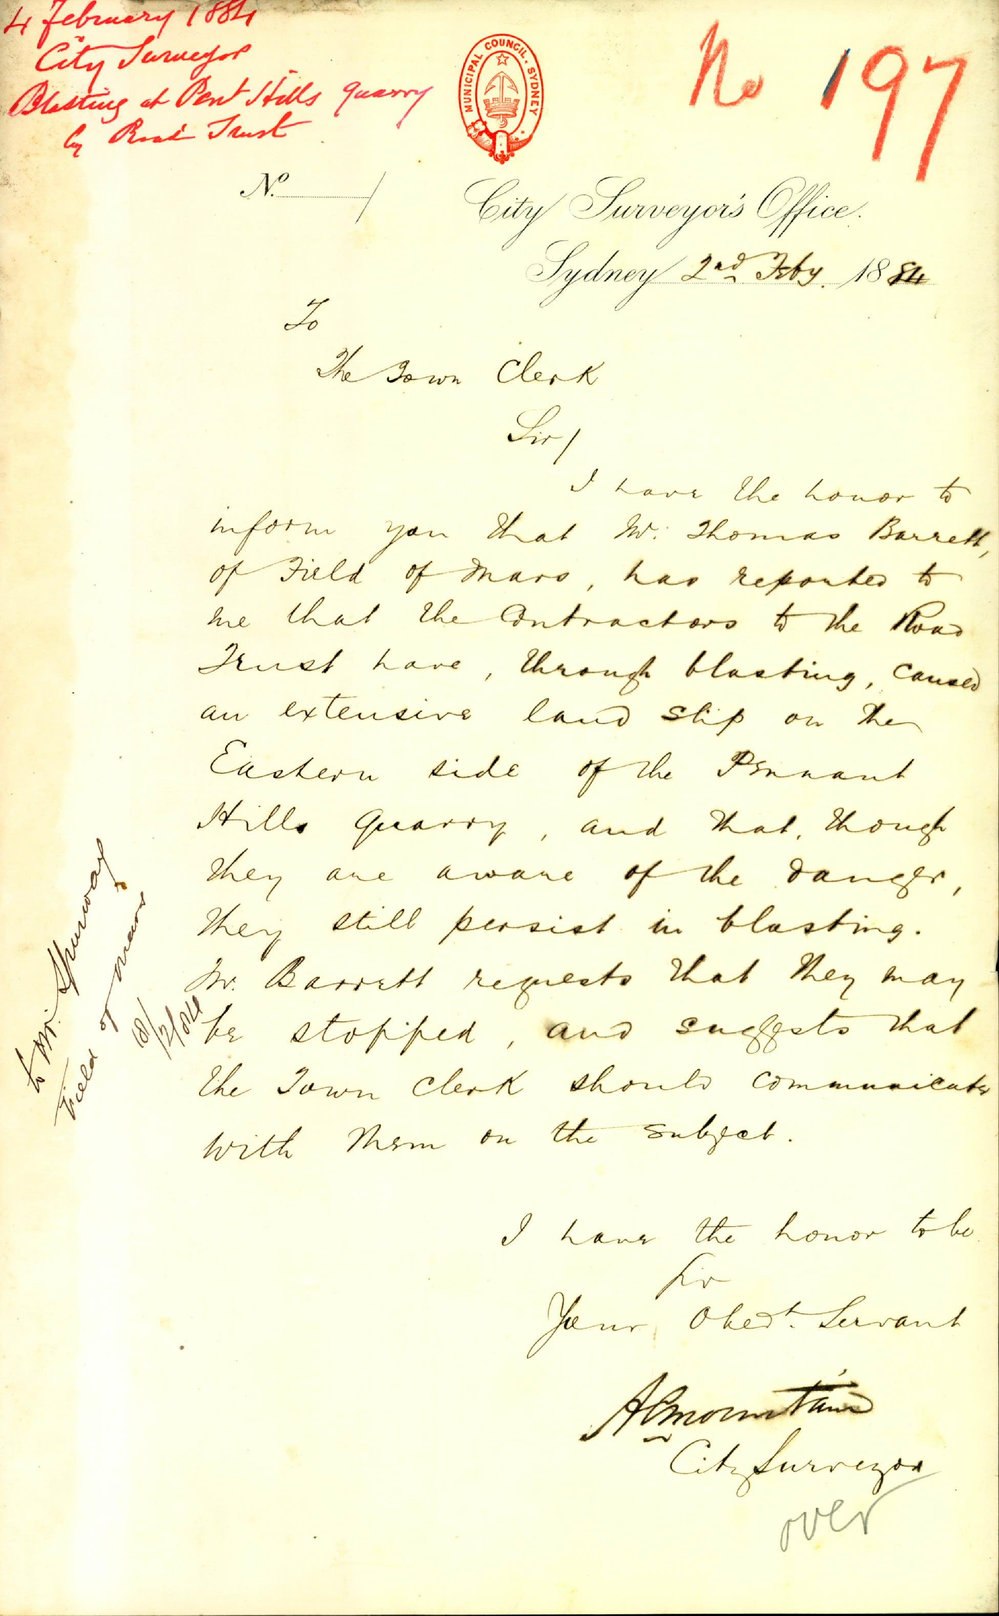 4 February 1884
City Surveyor
Blasting at Pent Hills Quarry
by Road Trust
No 197
MUNICIPAL COUNCIL. SYDNEY
No. /
City Surveyor's Office.
Sydney 2nd Feby. 1884
To
The Town Clerk
Sir/
I have the honor to
inform you that Mr. Thomas Barrett,
of Field of Mars, has reported to
me that the Contractors to the Road
Trust have, through blasting, caused
an extensive land slip on the
Eastern side of the Pennant
Hills Quarry, and that, though
they are aware of the danger,
they still persist in blasting.
Mr. Barrett requests that they may
be stopped, and suggests that
the Town Clerk should communicate
with them on the subject.
I have the honor to be
Sir
Your Obedt. Servant
A C Mountain
City Surveyor
over
to Mr. Spurway
Field of Mars
/2/84